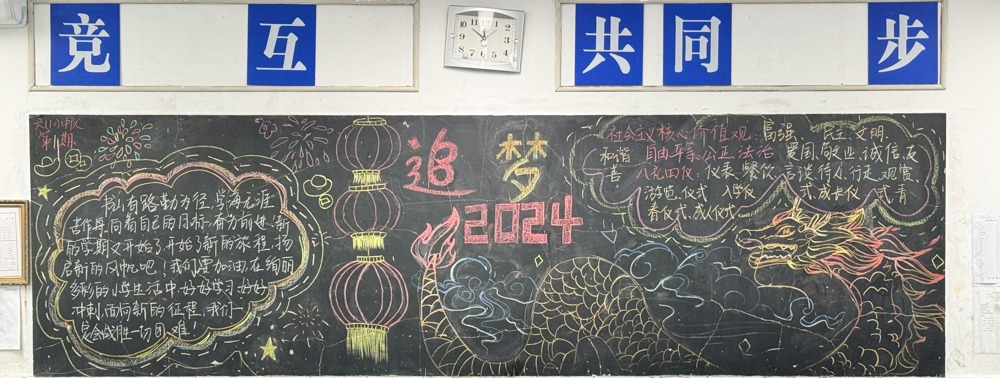 竞 互 共 同 步
第1期
追 梦
2024
书山有路勤为径,学海无涯
苦作舟,向着自己的目标奋力前进,新
的学期又开始了开始了新的旅程,扬
启新的风帆吧!我们要加油,在绚丽
多彩的小学生活中好好学习好好
冲刺,面向新的征程,我们一
定会战胜一切困难
社会主义核心价值观:富强、民主、文明、
和谐 自由平等、公正、法治 爱国、敬业、诚信、友
善 八礼四仪:仪表、餐饮、言谈、待人、行走、观赏、
游览、仪式 入学仪式 成长仪式 青
春仪式、成人仪式